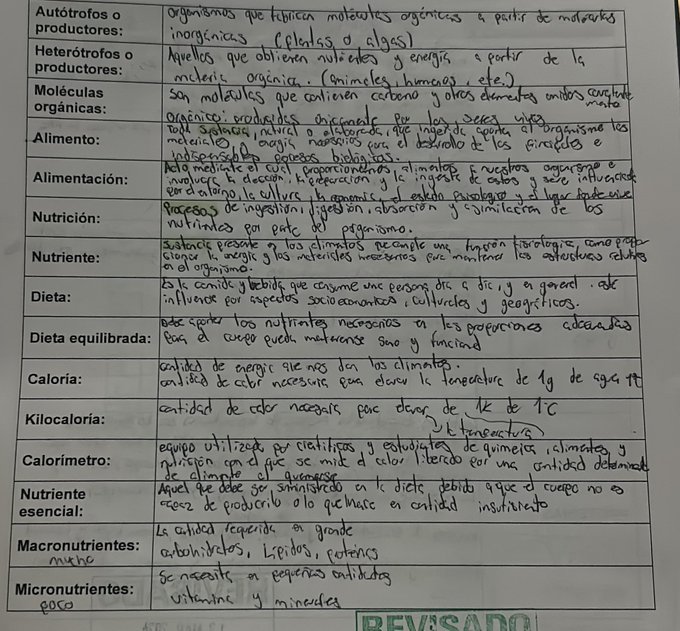 Autótrofos o productores:
organismos que fabrican moléculas orgánicas a partir de moléculas
inorgánicas (plantas o algas)
Heterótrofos o productores:
Aquellos que obtienen nutrientes y energía a partir de la
materia orgánica. (animales, humanos, etc.)
Moléculas orgánicas:
Son moléculas que contienen carbono y otros elementos unidos
Orgánico: producidas únicamente por los seres vivos
Alimento:
Toda sustancia, natural o elaborada, que ingerida aporta al organismo los
materiales y energía necesarios para el desarrollo de los
indispensables procesos biológicos.
Alimentación:
Acto mediante el cual proporcionamos alimentos a nuestros organismo e
involucra la elección, la preparación y la ingesta de estos y se ve influenciada
por el entorno, la cultura, la economía, el estado psicológico y el lugar donde vive
Nutrición:
Procesos de ingestión, digestión, absorción y asimilación de los
nutrientes por parte del organismo.
Nutriente:
Sustancia presente en los alimentos que cumple una función fisiológica, como
cionar la energía y los materiales necesarios para mantener las estructuras
en el organismo.
Dieta:
Es la comida y bebida que consume una persona día a día, y en general está
influence por aspectos socioeconomicos, culturales y geográficos.
Dieta equilibrada:
Debe aportar los nutrientes necesarios en las proporciones adecuadas
para el cuerpo pueda mantenerse sano y funcional
Caloría:
cantidad de energía que nos dan los alimentos.
cantidad de calor necesaria para elevar la temperatura de 1g de agua
Kilocaloría:
cantidad de calor necesaria para elevar de 1k de 1°C
la temperatura
Calorímetro:
equipo utilizado por científicos y estudiantes de química, alimentos y
nutrición con el que se mide el calor liberado por una cantidad
de alimento al quemarse
Nutriente esencial:
Aquel que debe ser suministrado en la dieta debido a que el cuerpo no es
capaz de producirlo o lo que hace en cantidad insuficiente
Macronutrientes:
mucho
La cantidad requerida en grande
carbohidratos, Lípidos, proteínas
Micronutrientes:
poco
Se necesita en pequeñas cantidades
vitamina y minerales
REVISADO